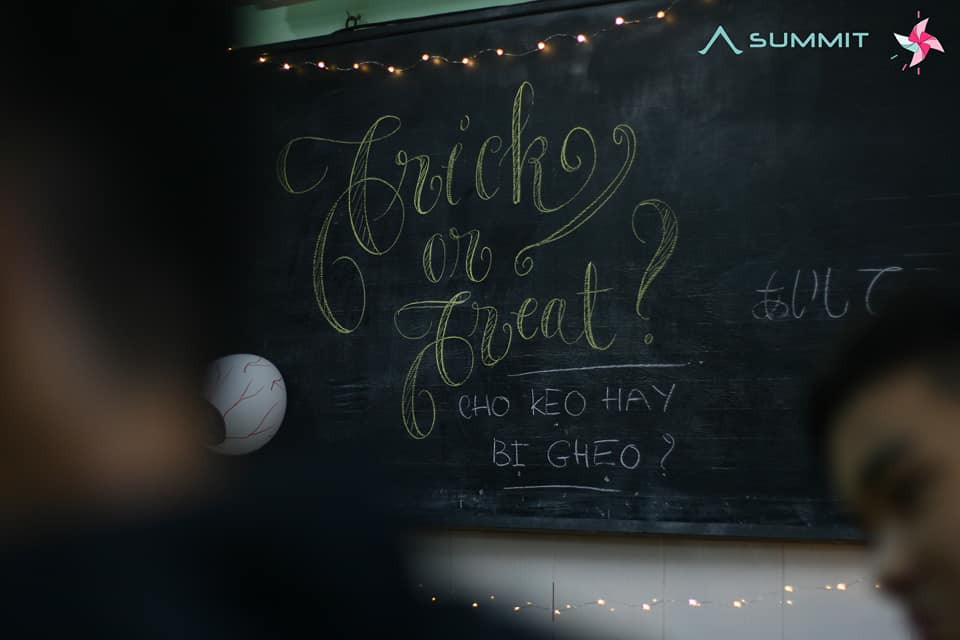 SUMMIT
Trick
or
Treat?
あいして
CHO KẸO HAY
BỊ GHẸO?